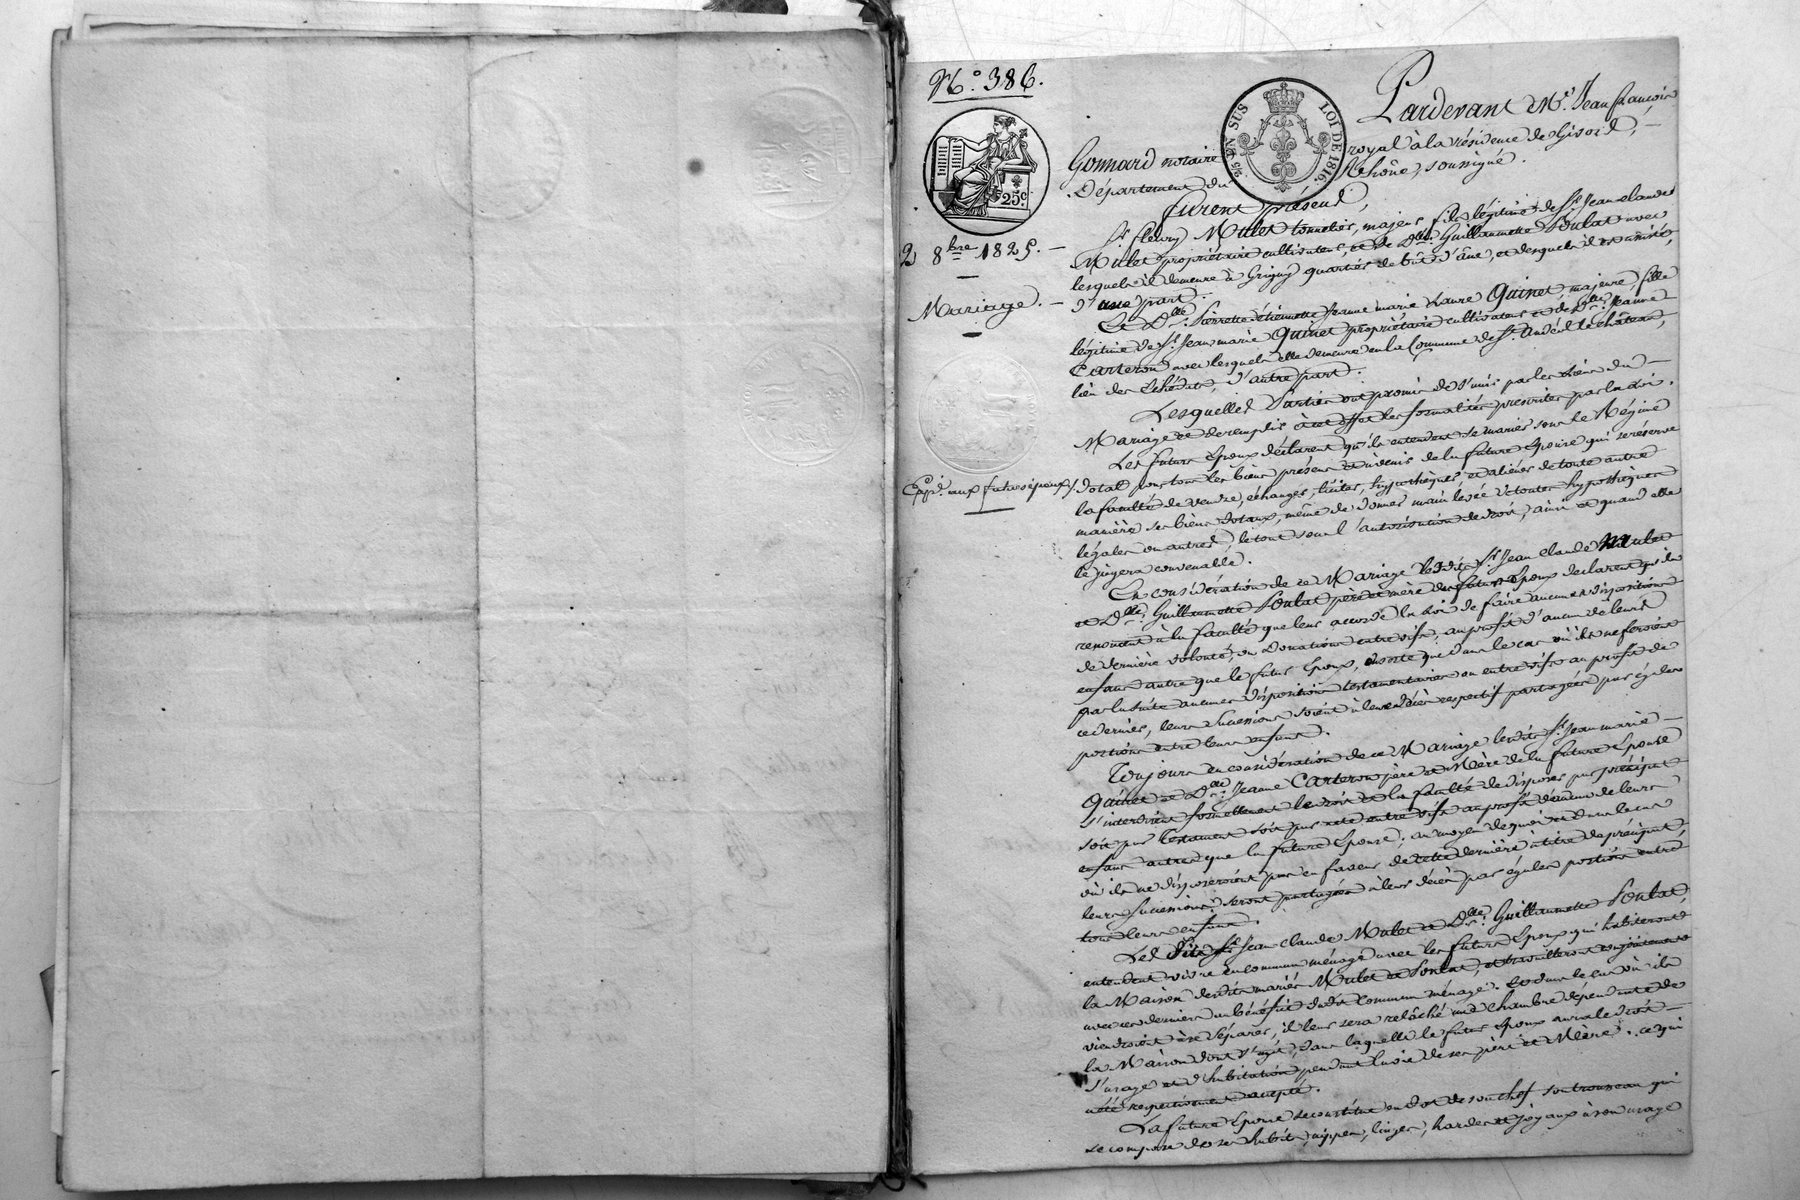 N.º 386.
25c
2 8bre 1825. —
Mariage. —
Expd. aux futurs époux
1/5 EN SUS LOI DE 1816.
Pardevant Me. Jean françois
Gonnard notaire royal à la résidence de Givors, —
Département du Rhône, soussigné.
furent présens,
Sr. fleury Mulet tonnelier, majeur fils légitime de Sr. Jean claude
Mulet propriétaire cultivateur, et de Dlle. Guillaumette Poulat avec
lesquels il demeure à Grigny quartier de bût d'âne, et desquels il est assisté,
d'une part.
Et Dlle. Pierrette étiennette Jeanne marie Laure Quinet, majeure, fille
légitime de Sr. Jean marie Quinet propriétaire cultivateur et de Dlle. Jeanne
Carteron avec lesquels elle demeure en la Commune de St. Andéol le château,
lieu de d'autre part.
Lesquelles Parties ont promis de s'unir par les liens du —
Mariage et de remplir à cet effet les formalités prescrites par la loi.
Les futurs époux déclarent qu'ils entendent se marier sous le Régime
Dotal pour tous les biens présens et à venir de la future épouse qui se réserve
la faculté de vendre, échanger, traiter, hypothéquer, et aliéner de toute autre
manière ses biens dotaux, même de donner main levée de toutes hypothèques
légales ou autres, le tout sous l'autorisation de droit, ainsi et quand elle
le jugera convenable.
En considération de ce Mariage lesdits Sr. Jean claude Mulet
et Dlle. Guillaumette Poulat père et mère du futur époux déclarent qu'ils
renoncent à la faculté que leur accorde la loi de faire aucunes dispositions
de dernière volonté, ou Donations entre vifs, au profit d'aucun de leurs
enfans autre que le futur époux, ensorte que dans le cas où ils ne feroient
par la suite aucunes dispositions testamentaires ou entre vifs au profit de
ce dernier, leurs successions soient à leur décès respectif partagées par égales
portions entre leurs enfans.
Toujours en considération de ce Mariage lesdits Sr. Jean marie —
Quinet et Dlle. Jeanne Carteron père et Mère de la future épouse
s'interdisent formellement le droit et la faculté de disposer par préciput
soit par Testament soit par acte entre vifs au profit d'aucun de leurs
enfans autres que la future épouse; au moyen de quoi et dans le cas
où ils ne disposeroient pas en faveur de cette dernière à titre de préciput,
leurs successions seront partagées à leurs décès par égales portions entre
tous leurs enfans.
Les dits Sr. Jean claude Mulet et Dlle. Guillaumette Poulat,
entendent vivre en commun ménage avec les futurs époux qui habiteront
la Maison desdits mariés Mulet et Poulat, et travailleront conjointement
avec ces derniers au bénéfice dudit commun ménage. Et dans le cas où ils
viendroient à se séparer, il leur sera relâché une chambre dépendante de
la Maison dont s'agit, dans laquelle le futur époux aura le droit —
d'usage et d'habitation pendant la vie de ses père et Mère. ce qui
a été respectivement accepté.
La future épouse se constitue en dot de son chef son trousseau qui
se compose de ses habits, nippes, linges, hardes et joyaux à son usage